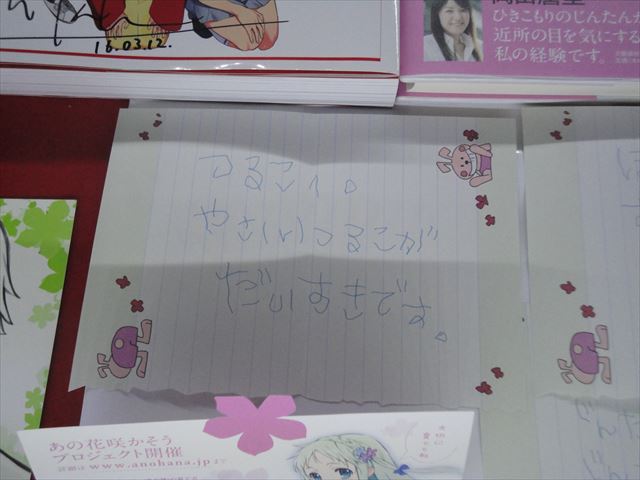 16.03.12.
岡田麿里
ひきこもりのじんたんが
近所の目を気にする
私の経験です。
つるこへ。
やさしいつるこが
だいすきです。
あの花咲かそう
プロジェクト開催
詳細は www.anohana.jp まで